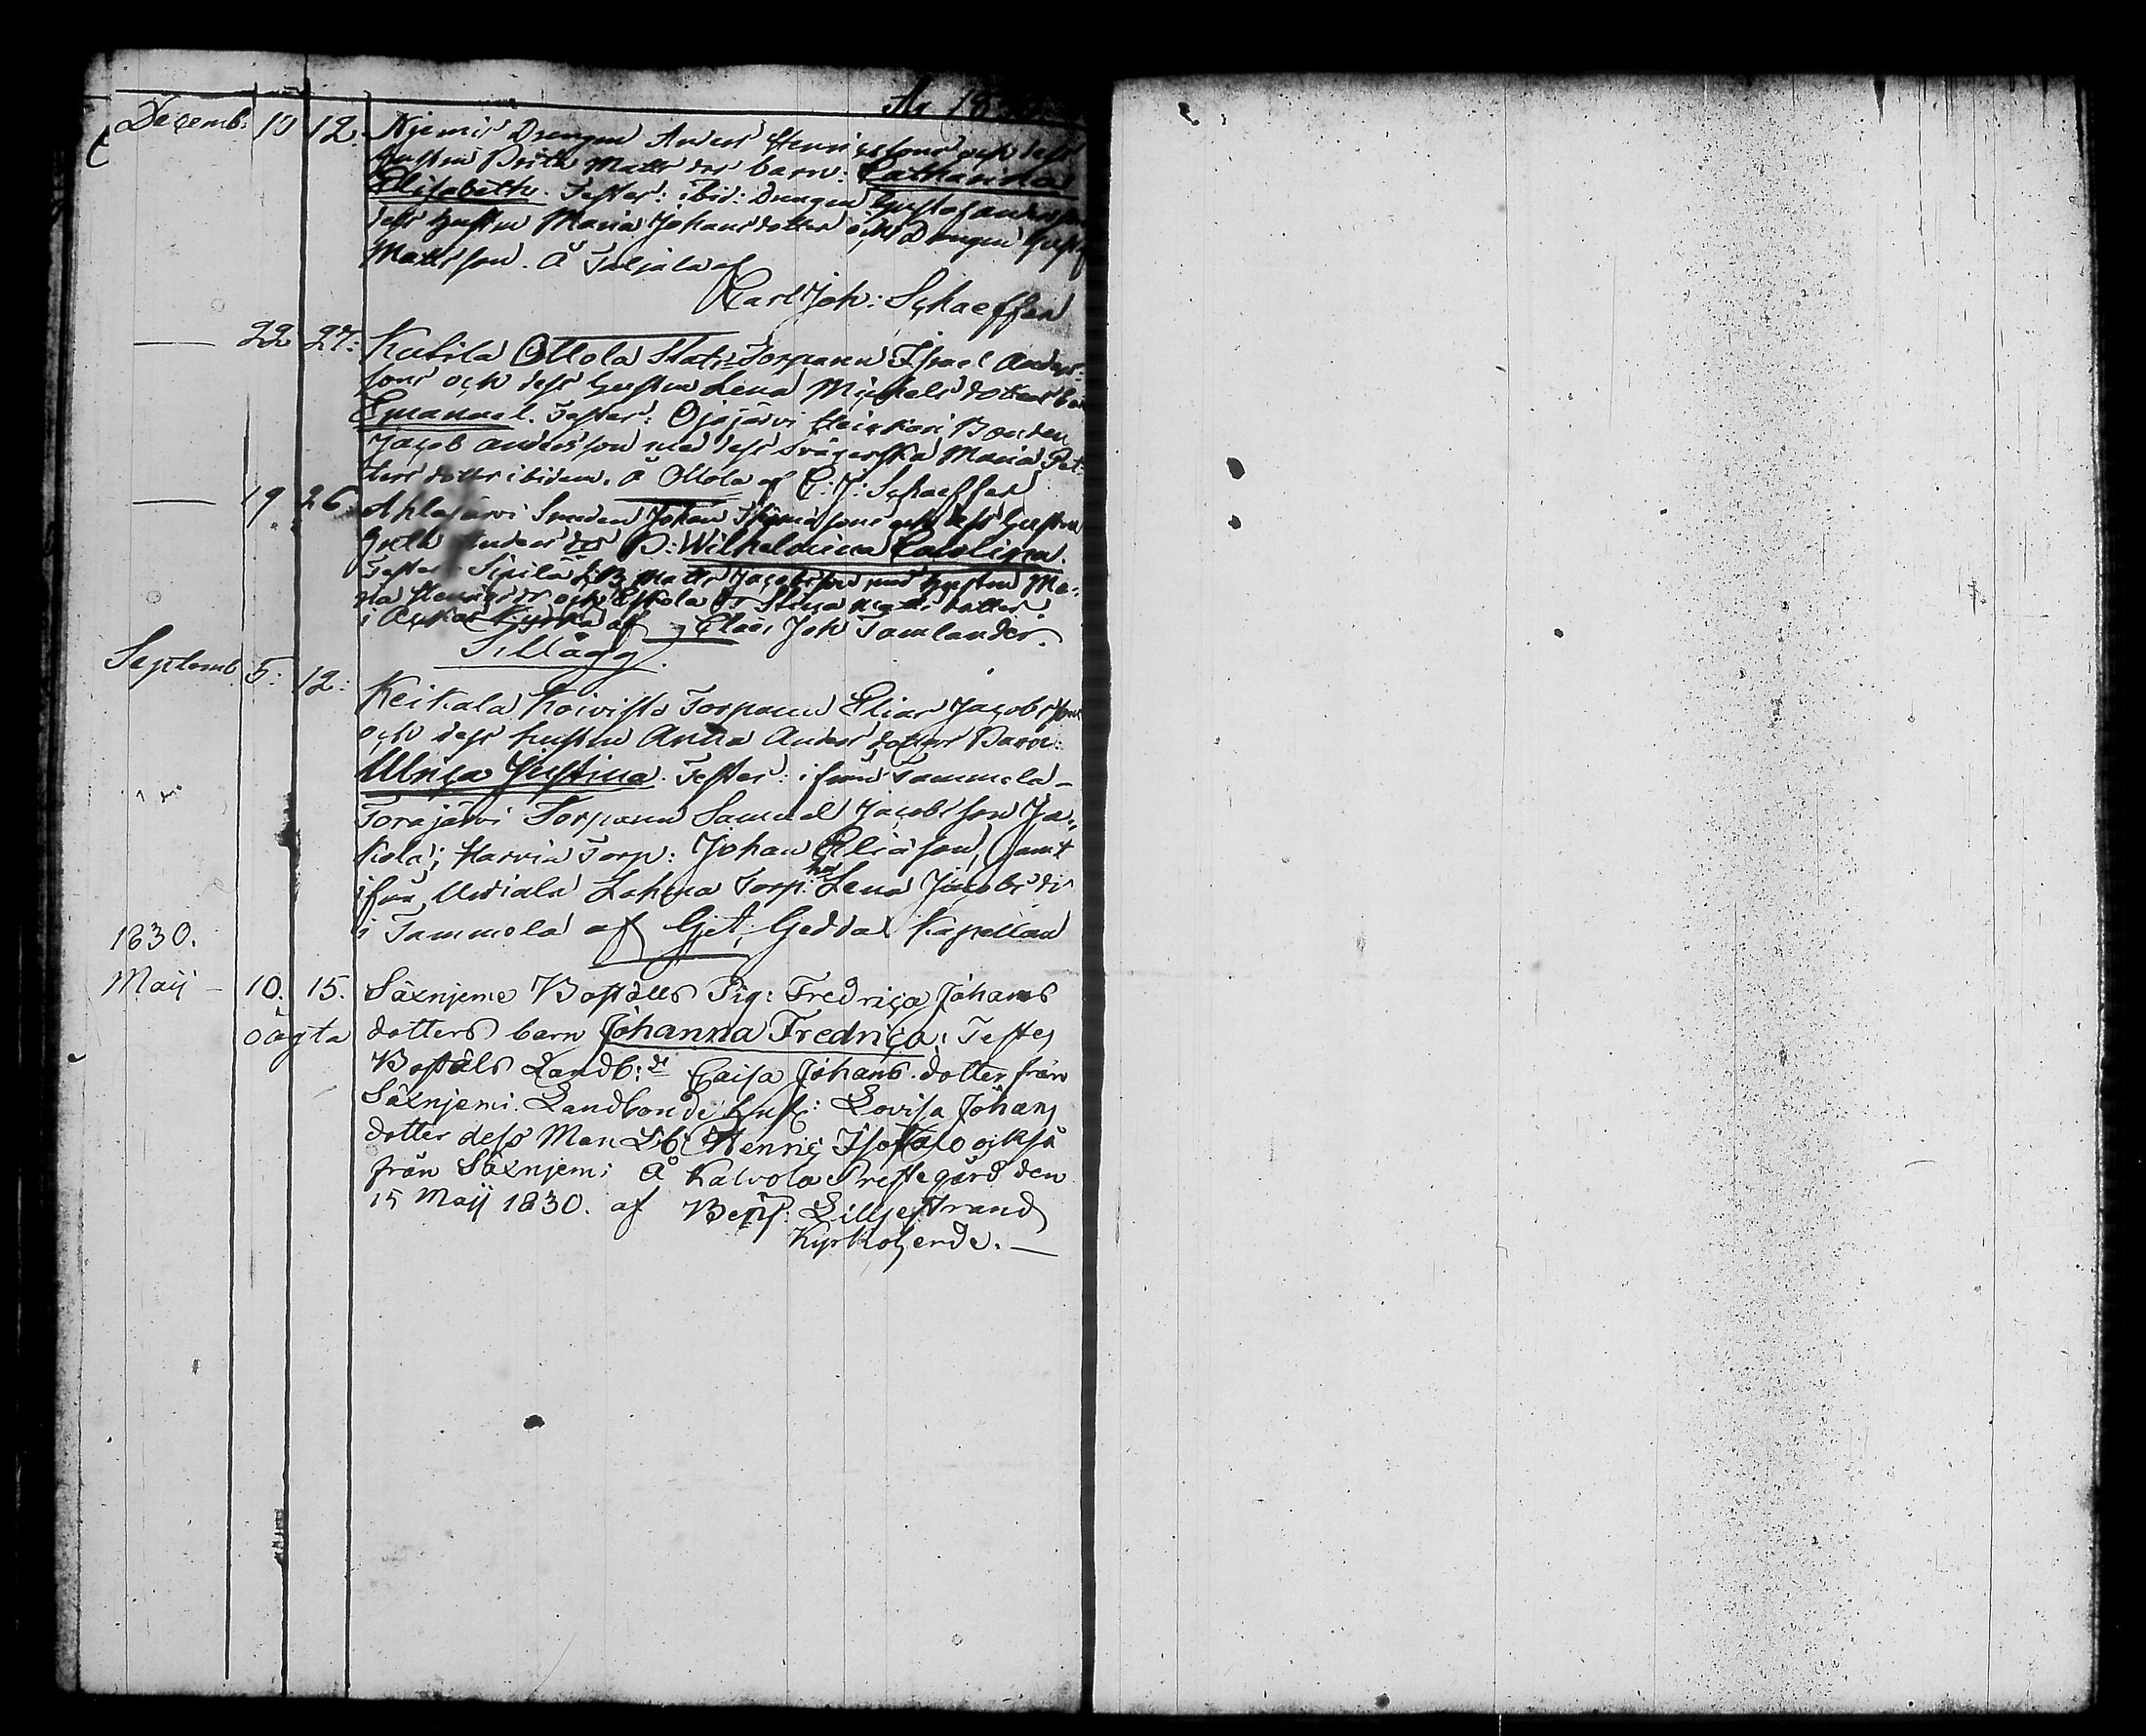 År 18
Decemb: 10 12. Njemis Drengen Anders Henricssons och dess
Hustru Brita Matts drs barn: Catharina
Elisabeth. Testes: ibid: Drengen Gustaf Andersson
dess hustru Maria Johansdotter och Drengen Gustaf
Mattsson. Å Taljala af
Carl Joh: Schaeffer
— 22 27: Kutila Ollola Stats Torparen Israel Anders-
sons och dess hustru Lena Michelsdotters barn
Emanuel. Testes: Ojajärvi Heickari Bonden
Jacob Andersson med dess svägerska Maria Pet-
ters dotter ibidem. Å Ollola af C: J: Schaeffer
— 19 26 Ahlajärvi Smeden Johan Thomæsons och dess hustru
Greta Anders drs B: Wilhelmina Carolina.
Testes: Sipilä Matts Jacobsson med hustru Ma-
ria Henrics dr och Eskola Stina Matts dotter
i kyrka af Claës Joh Tamlander.
Tillägg.
Septemb. 5: 12: Keikala Koivisto Torparen Elias Jacobssons
och dess hustru Anna Anders dotters Barn:
Ulrica Justina. Testes: ifrån Tammela
Torajärvi Torparen Samuel Jacobsson Ja-
kola; Harvia Torp: Johan Eliæson, samt
ifrån Urdiala Torp: hu Lena Jacobs dr
i Tammela af G: A: Gedda Kapellan
1830.
Maij — 10. 15. Säxnjeme Boställs Pig: Fredrica Johans
oägta dotters barn Johanna Fredrica; Testes
Boställs Landb: dr Caisa Johans dotter från
Säxnjemi. Landbonde hust: Lovisa Johans
dotter dess Man Lb: Henric Isotalo också
från Säxnjemi Å Kalvola Prestegård den
15 Maij 1830. af Benj: Lilljestrand
Kyrkoherde. —